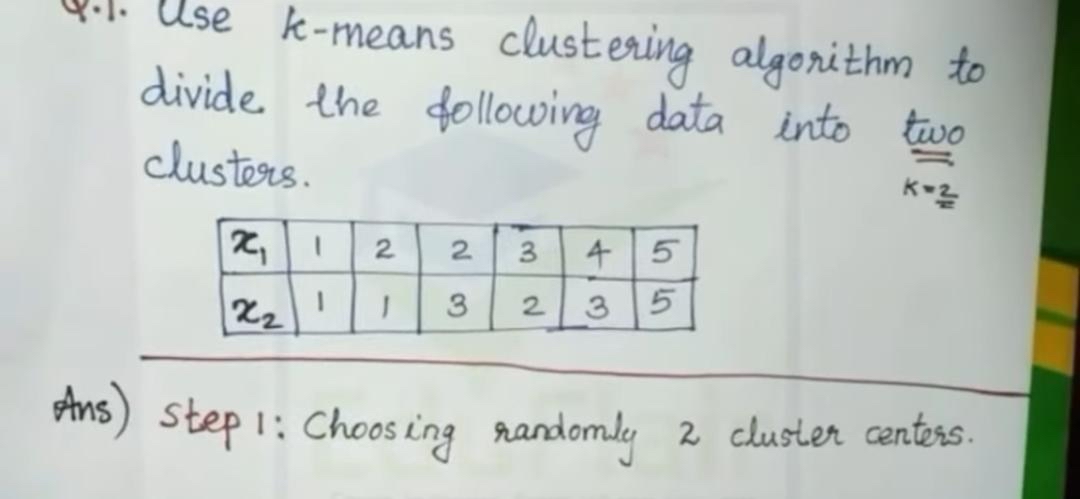 Q.1. Use k-means clustering algorithm to
divide the following data into two
clusters.
K=2
x₁ 1 2 2 3 4 5
x₂ 1 1 3 2 3 5
Ans) Step 1: Choosing randomly 2 cluster centers.